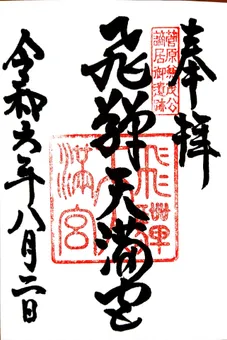 奉拝
菅原兼茂公
謫居御遺跡
飛騨天満宮
飛騨天満宮
令和六年八月二日